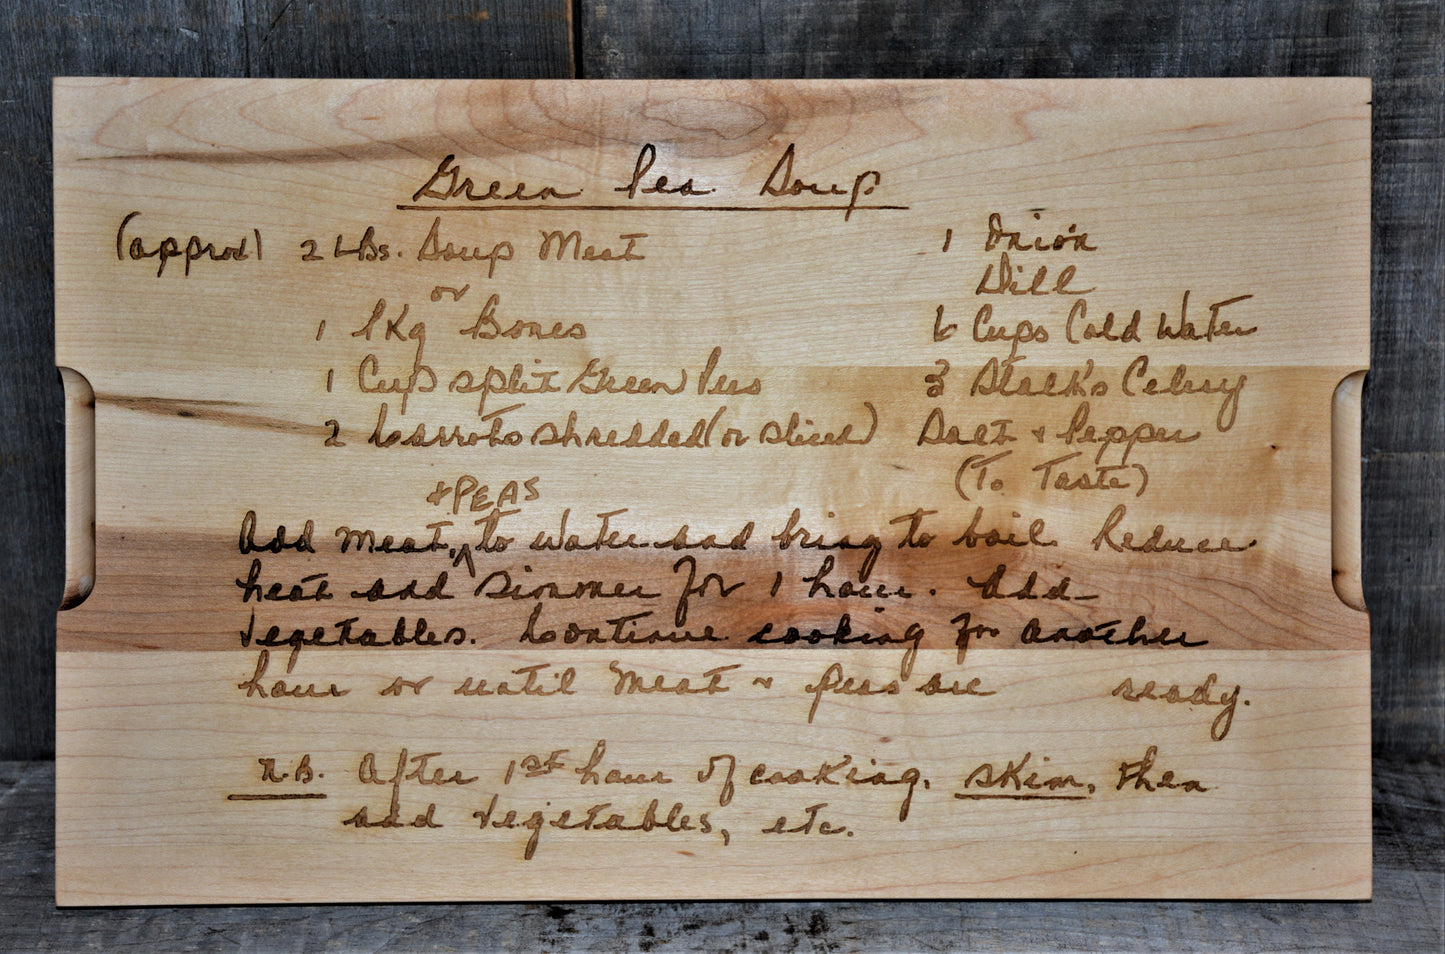 Green Pea Soup
(approx) 2 Lbs. Soup Meat
or
1 1Kg Bones
1 Cup split Green Peas
2 Carrots shredded (or sliced)
1 Onion
Dill
6 Cups Cold Water
3 Stalk's Celery
Salt & Pepper
(To Taste)
& PEAS
Add Meat, ^ to water and bring to boil. Reduce
heat and simmer for 1 hour. Add
vegetables. Continue cooking for another
hour or until Meat & peas are ready.
N.B. After 1st hour of cooking, skim, then
add vegetables, etc.